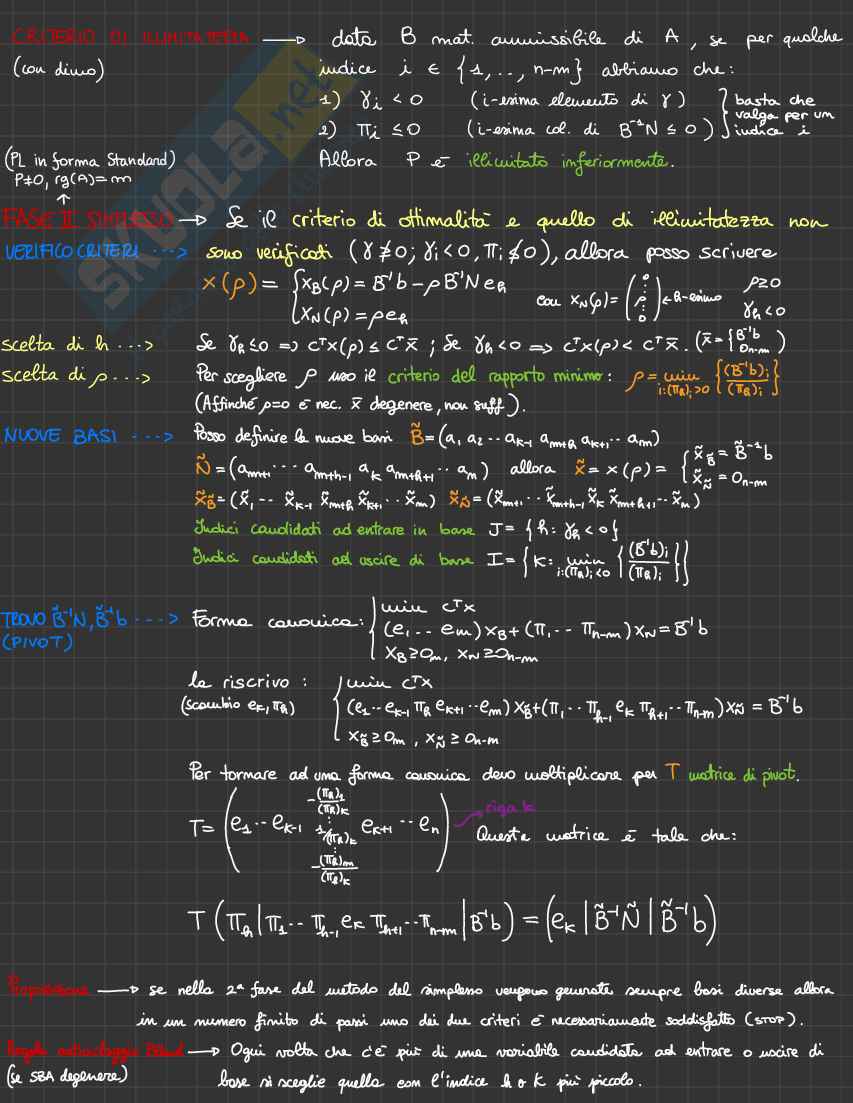 CRITERIO DI ILLIMITATEZZA → data B mat. ammissibile di A, se per qualche
(con dimo) indice i ∈ {1,..,n-m} abbiamo che:
1) γᵢ < 0 (i-esimo elemento di γ) } basta che
2) πᵢ ≤ 0 (i-esima col. di B⁻¹N ≤ 0) } valga per un indice i
(PL in forma Standard) Allora P è illimitato inferiormente.
P≠0, rg(A)=m
↑
FASE II SIMPLESSO → Se il criterio di ottimalità e quello di illimitatezza non
VERIFICO CRITERI ···> sono verificati (γ ≱ 0; γᵢ<0, πᵢ ≰ 0), allora posso scrivere
x(ρ) = { x_B(ρ) = B⁻¹b - ρB⁻¹N e_h con x_N(ρ) = (0 ⋮ ρ ⋮ 0) ← h-esimo ρ≥0
x_N(ρ) = ρe_h γ_h<0
scelta di h ···> Se γ_h ≤ 0 => cᵀx(ρ) ≤ cᵀx̄ ; Se γ_h < 0 => cᵀx(ρ) < cᵀx̄. (x̄ = { B⁻¹b 0_{n-m})
scelta di ρ ···> Per scegliere ρ uso il criterio del rapporto minimo: ρ = min_{i:(π_h)ᵢ>0} { (B⁻¹b)ᵢ / (π_h)ᵢ }
(Affinché ρ=0 è nec. x̄ degenere, non suff).
NUOVE BASI ···> Posso definire le nuove basi B̃ = (a₁ a₂ ·· a_{k-1} a_{m+h} a_{k+1} ·· a_m)
Ñ = (a_{m+1} ··· a_{m+h-1} a_k a_{m+h+1} ·· a_n) allora x̃ = x(ρ) = { x̃_B̃ = B̃⁻¹b
x̃_Ñ = 0_{n-m}
x̃_B̃ = (x̃₁ ·· x̃_{k-1} x̃_{m+h} x̃_{k+1} ·· x̃_m) x̃_Ñ = (x̃_{m+1} ·· x̃_{m+h-1} x̃_k x̃_{m+h+1} ·· x̃_n)
Indici candidati ad entrare in base J = {h: γ_h < 0}
Indici candidati ad uscire di base I = {k: min_{i:(π_h)ᵢ<0} { (B⁻¹b)ᵢ / (π_h)ᵢ }}
TROVO B̃⁻¹N, B̃⁻¹b ···> Forma canonica: { min cᵀx
(PIVOT) (e₁ ·· e_m) x_B + (π₁ ·· π_{n-m}) x_N = B⁻¹b
x_B ≥ 0_m, x_N ≥ 0_{n-m}
la riscrivo: { min cᵀx
(scambio e_k, π_h) (e₁ ·· e_{k-1} π_h e_{k+1} ·· e_m) x_B̃ + (π₁ ·· π_{h-1} e_k π_{h+1} ·· π_{n-m}) x_Ñ = B⁻¹b
x_B̃ ≥ 0_m, x_Ñ ≥ 0_{n-m}
Per tornare ad una forma canonica devo moltiplicare per T matrice di pivot.
T = (e₁ ·· e_{k-1} [-(π_h)₁/(π_h)_k ⋮ 1/(π_h)_k ⋮ -(π_h)_m/(π_h)_k] e_{k+1} ·· e_n) → riga k
Questa matrice è tale che:
T (π_h | π₁ ·· π_{h-1} e_k π_{h+1} ·· π_{n-m} | B⁻¹b) = (e_k | B̃⁻¹Ñ | B̃⁻¹b)
Proposizione → se nella 2ª fase del metodo del simplesso vengono generate sempre basi diverse allora
in un numero finito di passi uno dei due criteri è necessariamente soddisfatto (STOP).
Regola anticiclaggio Bland → Ogni volta che c'è più di una variabile candidata ad entrare o uscire di
(se SBA degenere) base si sceglie quella con l'indice h o k più piccolo.
SKUOLA.net